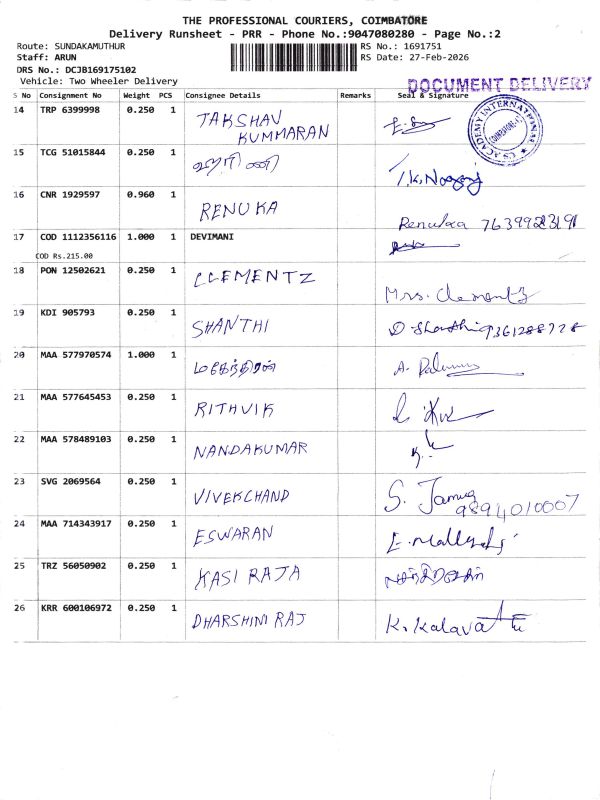 THE PROFESSIONAL COURIERS, COIMBATORE
Delivery Runsheet - PRR - Phone No.:9047080280 - Page No.:2
Route: SUNDAKAMUTHUR
RS No.: 1691751
Staff: ARUN
RS Date: 27-Feb-2026
DRS No.: DCJB169175102
Vehicle: Two Wheeler Delivery
DOCUMENT DELIVERY
S No Consignment No Weight PCS Consignee Details Remarks Seal & Signature
CS ACADEMY INTERNATIONAL
14 TRP 6399998 0.250 1 TAKSHAV KUMMARAN
15 TCG 51015844 0.250 1
16 CNR 1929597 0.960 1 RENUKA Renuka 7639923191
17 COD 1112356116 1.000 1 DEVIMANI
COD Rs.215.00
18 PON 12502621 0.250 1 CLEMENTZ Mrs. Clementz
19 KDI 905793 0.250 1 SHANTHI D. Shanthi 9361288728
20 MAA 577970574 1.000 1 மகேந்திரன்
21 MAA 577645453 0.250 1 RITHVIK
22 MAA 578489103 0.250 1 NANDAKUMAR
23 SVG 2069564 0.250 1 VIVEKCHAND S. 9894010007
24 MAA 714343917 0.250 1 ESWARAN
25 TRZ 56050902 0.250 1 KASI RAJA
26 KRR 600106972 0.250 1 DHARSHINI RAJ K. Kalavathi